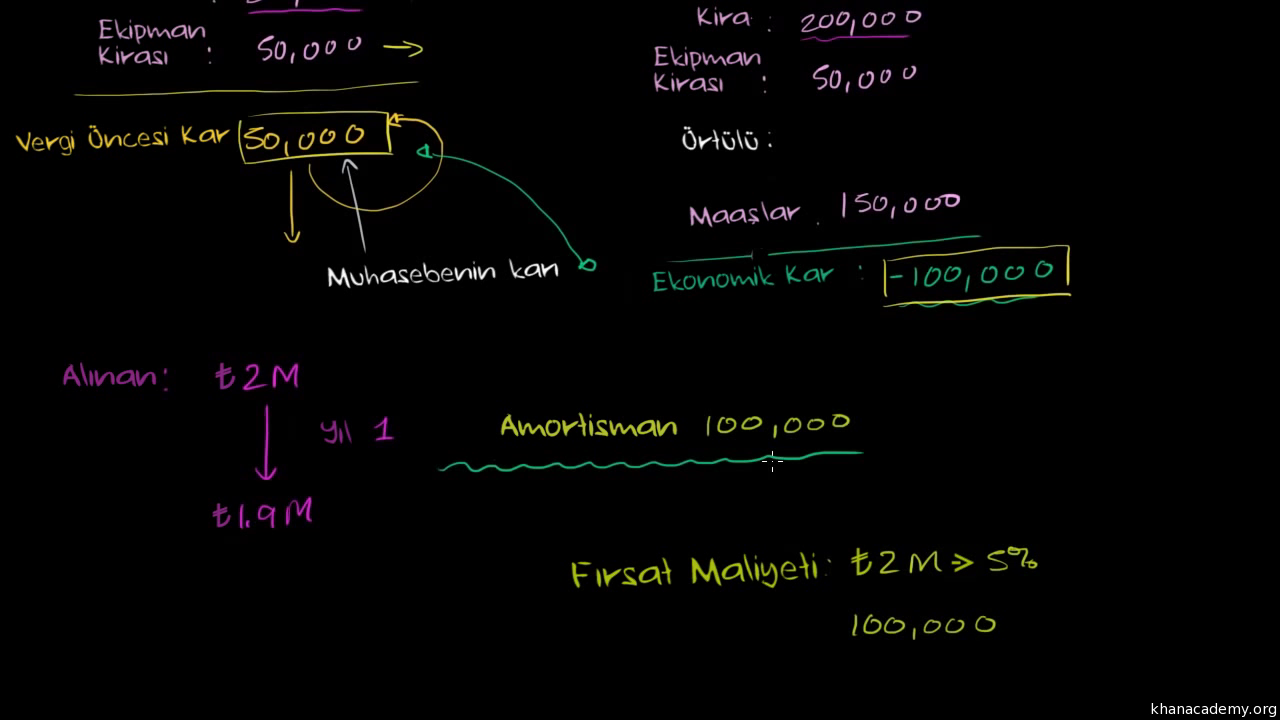 Ekipman
Kirası : 50,000
Vergi Öncesi Kar 50,000
Muhasebenin karı
Kira : 200,000
Ekipman
Kirası : 50,000
Örtülü :
Maaşlar . 150,000
Ekonomik Kar : -100,000
Alınan : ₺2M
yıl 1
₺1.9M
Amortisman 100,000
Fırsat Maliyeti : ₺2M => 5%
100,000
khanacademy.org